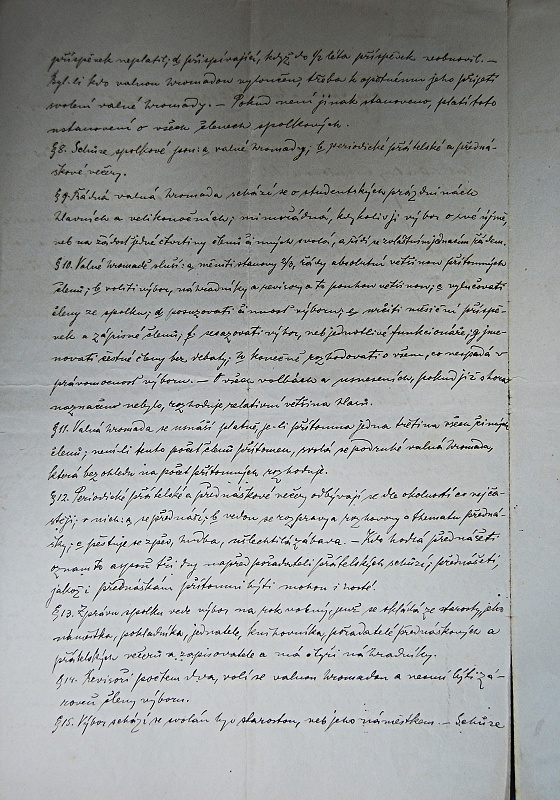 příspěvek neplatil; d, přispívající, když do ½ léta příspěvek neobnovil. –
Byl-li kdo valnou hromadou vyloučen, třeba k opětnému jeho přijetí
svolení valné hromady. – Pokud není jinak stanoveno, platí toto
ustanovení o všech členech spolkových.
§ 8. Schůze spolkové jsou: a, valné hromady; b, periodické přátelské a předná-
škové večery.
§ 9. Řádná valná hromada schází se o studentských prázdninách
hlavních a velikonočních; mimořádná, kdykoliv ji výbor o své újmě,
neb na žádost jedné čtvrtiny členů činných svolá, a řídí se zvláštním jednacím řádem.
§ 10. Valné hromadě sluší: a, měniti stanovy, řády absolutní většinou přítomných
členů; b, voliti výbor, náhradníky a revisory a to pouhou většinou; c, vylučovati
členy ze spolku; d, posuzovati činnost výboru; e, určiti měsíční příspě-
vek a zápisné členů; f, sesazovati výbor, neb jednotlivé funkcionáře; g, jme-
novati čestné členy bez debaty; h, konečně rozhodovati o všem, co nespadá v
právomocnost výboru. – O všech volbách a usneseních, pokud již shora
naznačeno nebylo, rozhoduje relativní většina hlasů.
§ 11. Valná hromada se usnáší platně, je-li přítomna jedna třetina všech činných
členů; není-li tento počet členů přítomen, svolá se podruhé valná hromada,
která bez ohledu na počet přítomných rozhoduje.
§ 12. Periodické přátelské a přednáškové večery odbývají se dle okolností co nejča-
stěji; v nich: a, se přednáší; b, vedou se rozpravy a rozhovory o thematu předná-
šky; c, pěstuje se zpěv, hudba, ušlechtilá zábava. – Kdo hodlá přednášeti
oznam to aspoň tři dny napřed pořadateli přátelských schůzí; přednášeti,
jakož i přednáškám přítomni býti mohou i hosté.
§ 13. Zprávu spolku vede výbor na rok volený, jenž se skládá ze starosty, jeho
náměstka, pokladníka, jednatele, knihovníka, pořadatele přednáškových a
přátelských večerů a zapisovatele a má čtyři náhradníky.
§ 14. Revisoři počtem dva, volí se valnou hromadou a nesmí býti zá-
roveň členy výboru.
§ 15. Výbor schází se svolán byv starostou, neb jeho náměstkem. – Schůze